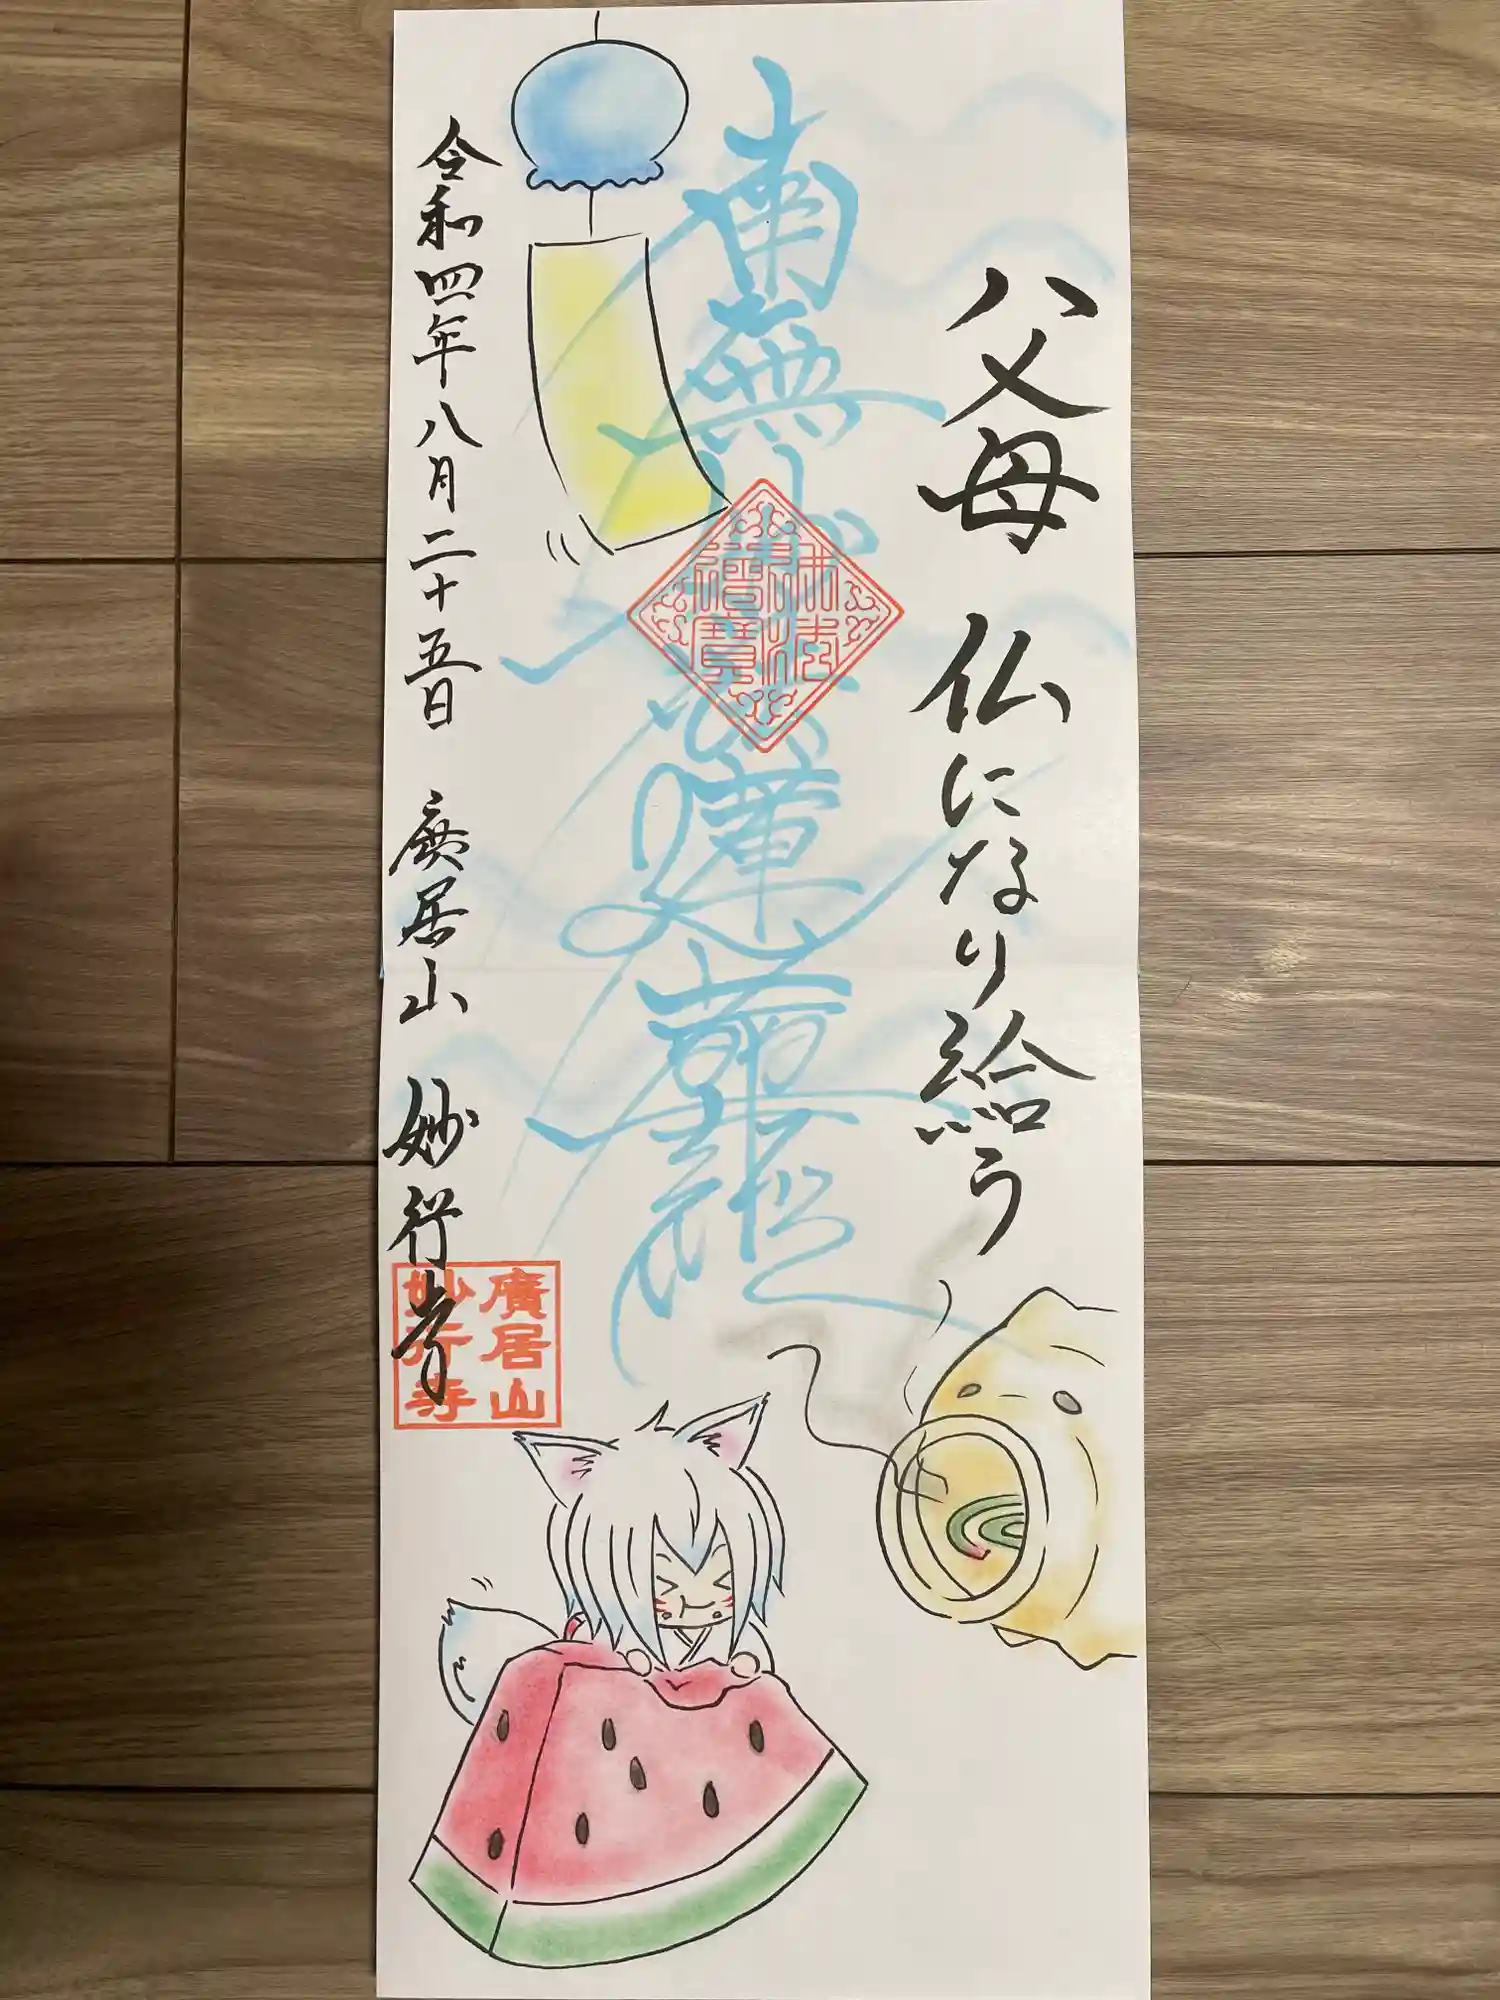 八父母 仏になり給う
南無妙法蓮華経
佛法
僧寳
令和四年八月二十五日 廣居山 妙行寺
廣居山
妙行寺